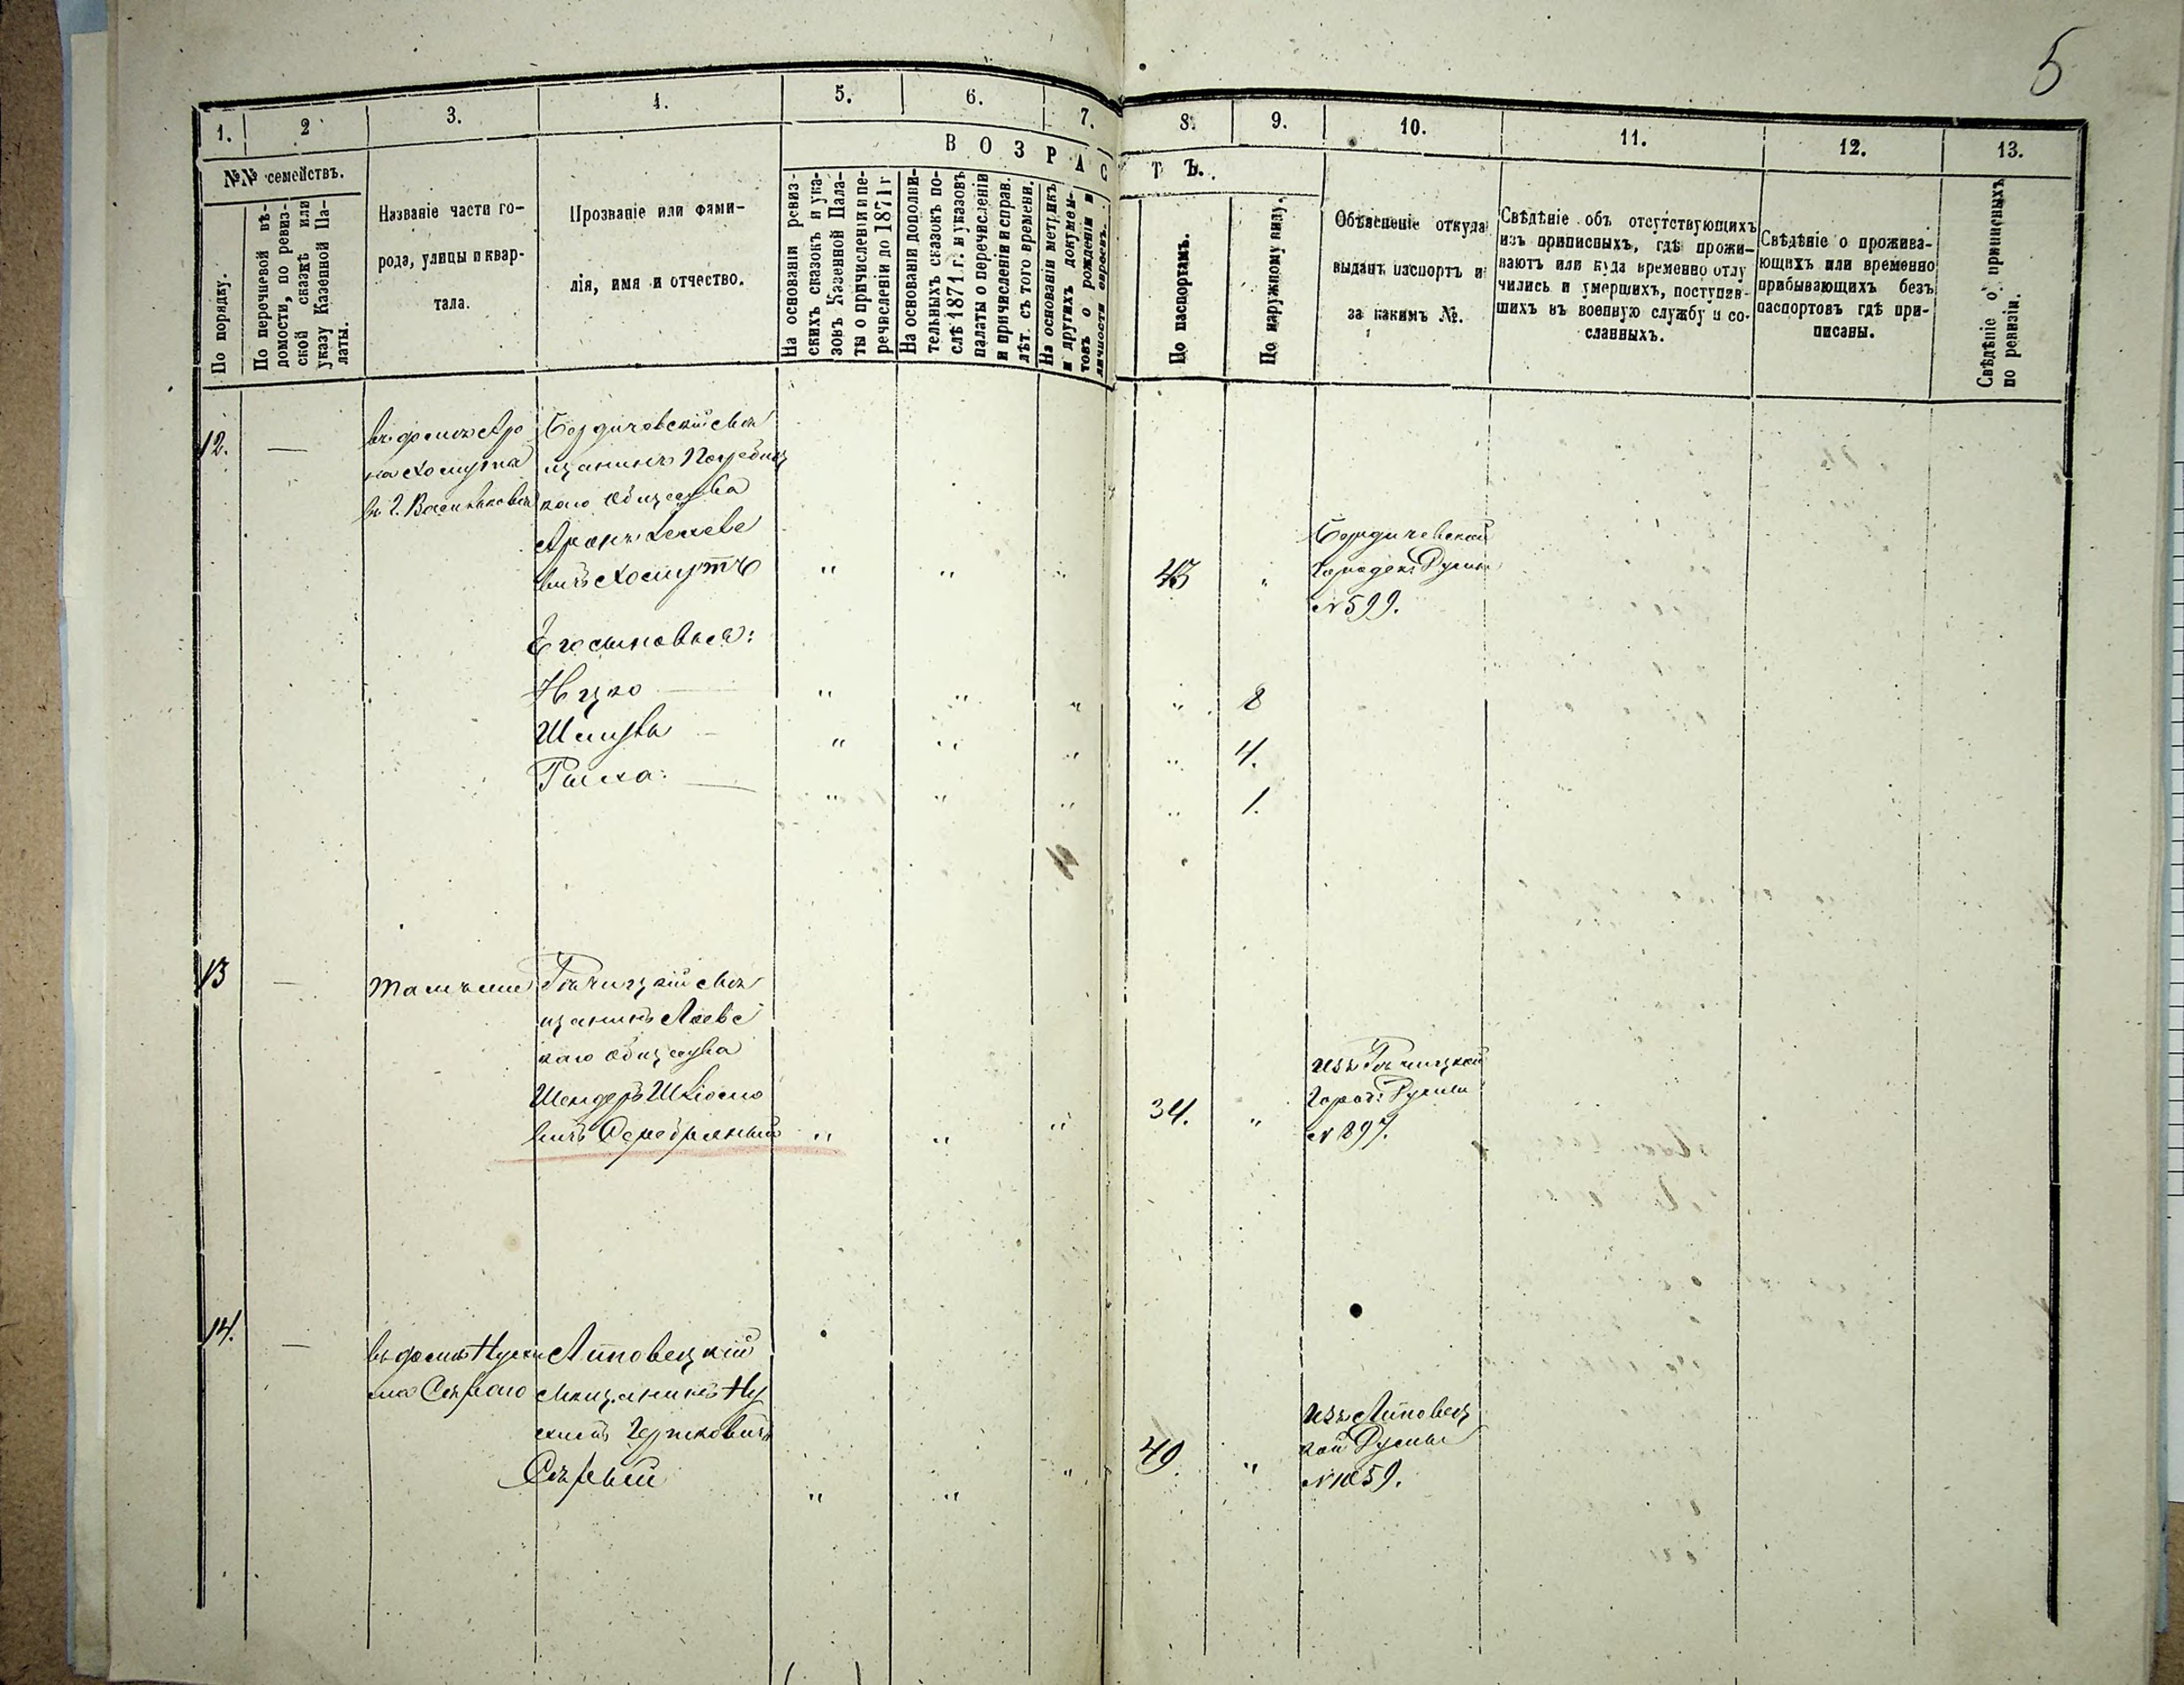 5
1.
2
3.
4.
5.
6.
7.
8.
9.
10.
11.
12.
13.
№№ семействъ.
ВОЗРАСТЪ.
По порядку.
По перечневой вѣ-
домости, по ревиз-
ской сказкѣ или
указу Казенной Па-
латы.
Названіе части го-
рода, улицы и квар-
тала.
Прозваніе или фами-
лія, имя и отчество.
На основаніи ревиз-
скихъ сказокъ и ука-
зовъ Казенной Пала-
ты о причисленіи и пе-
речисленіи до 1871 г
На основаніи дополни-
тельныхъ сказокъ по-
слѣ 1871 г. и указовъ
палаты о перечисленіи
и причисленіи и справ.
лѣт. съ того времени.
На основаніи метрикъ
и другихъ докумен-
товъ о рожденіи и
личности евреевъ.
По паспортамъ.
По наружному виду.
Объясненіе откуда
выданъ паспортъ и
за какимъ №.
Свѣдѣніе объ отсутствующихъ
изъ приписныхъ, гдѣ прожи-
ваютъ или куда временно отлу
чились и умершихъ, поступив-
шихъ въ военную службу и со-
сланныхъ.
Свѣдѣніе о прожива-
ющихъ или временно
прибывающихъ безъ
паспортовъ гдѣ при-
писаны.
Свѣдѣніе о приписныхъ
по ревизіи.
12.
въ домѣ Аро
на Хомута
въ г. Васильковѣ
Бердичевскій мѣ
щанинъ Погребищ
каго общества
Аронъ
вичъ Хомутъ
43
Бердичевской
Городск. Думы
№ 599.
Его сыновья:
Ицко
8
Шмуль
4.
1.
13
тамъ же
Рѣчицкій мѣ
щанинъ Лоевс
каго общества
Шендеръ
вичъ Серебряный
34.
изъ Рѣчицкой
Город: Думы
№ 897.
14.
въ домѣ Нухи
ма Сѣраго
Липовецкій
мѣщанинъ Ну
химъ Гершковичъ
Сѣрый
49.
изъ Липовец
кой Думы
№ 1059.